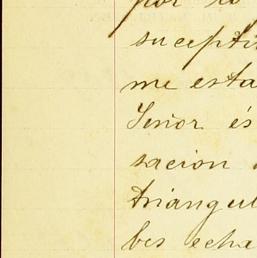 por lo
sucepti
me esta
Señor és
sacion
triangul
bes echa